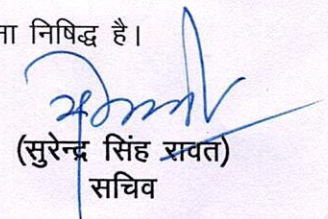 ना निषिद्ध है।
(सुरेन्द्र सिंह रावत)
सचिव